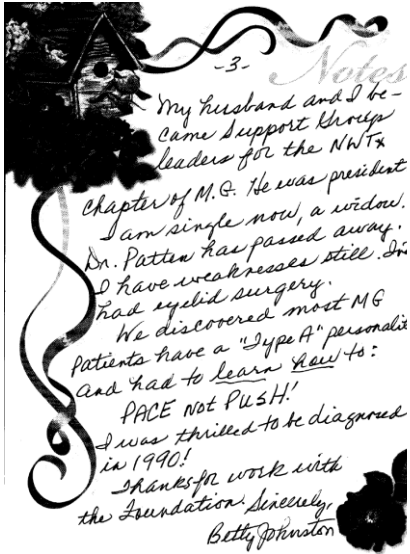 -3-
Notes
My husband and I be-
came Support Group
leaders for the NWTx
chapter of M.G. He was president
I am single now, a widow.
Dr. Patten has passed away.
I have weaknesses still.
had eyelid surgery.
We discovered most MG
Patients have a "Type A"
and had to learn how to:
PACE Not PUSH!
I was thrilled to be diagnosed
in 1990!
Thanks for work with
the Foundation. Sincerely,
Betty Johnston